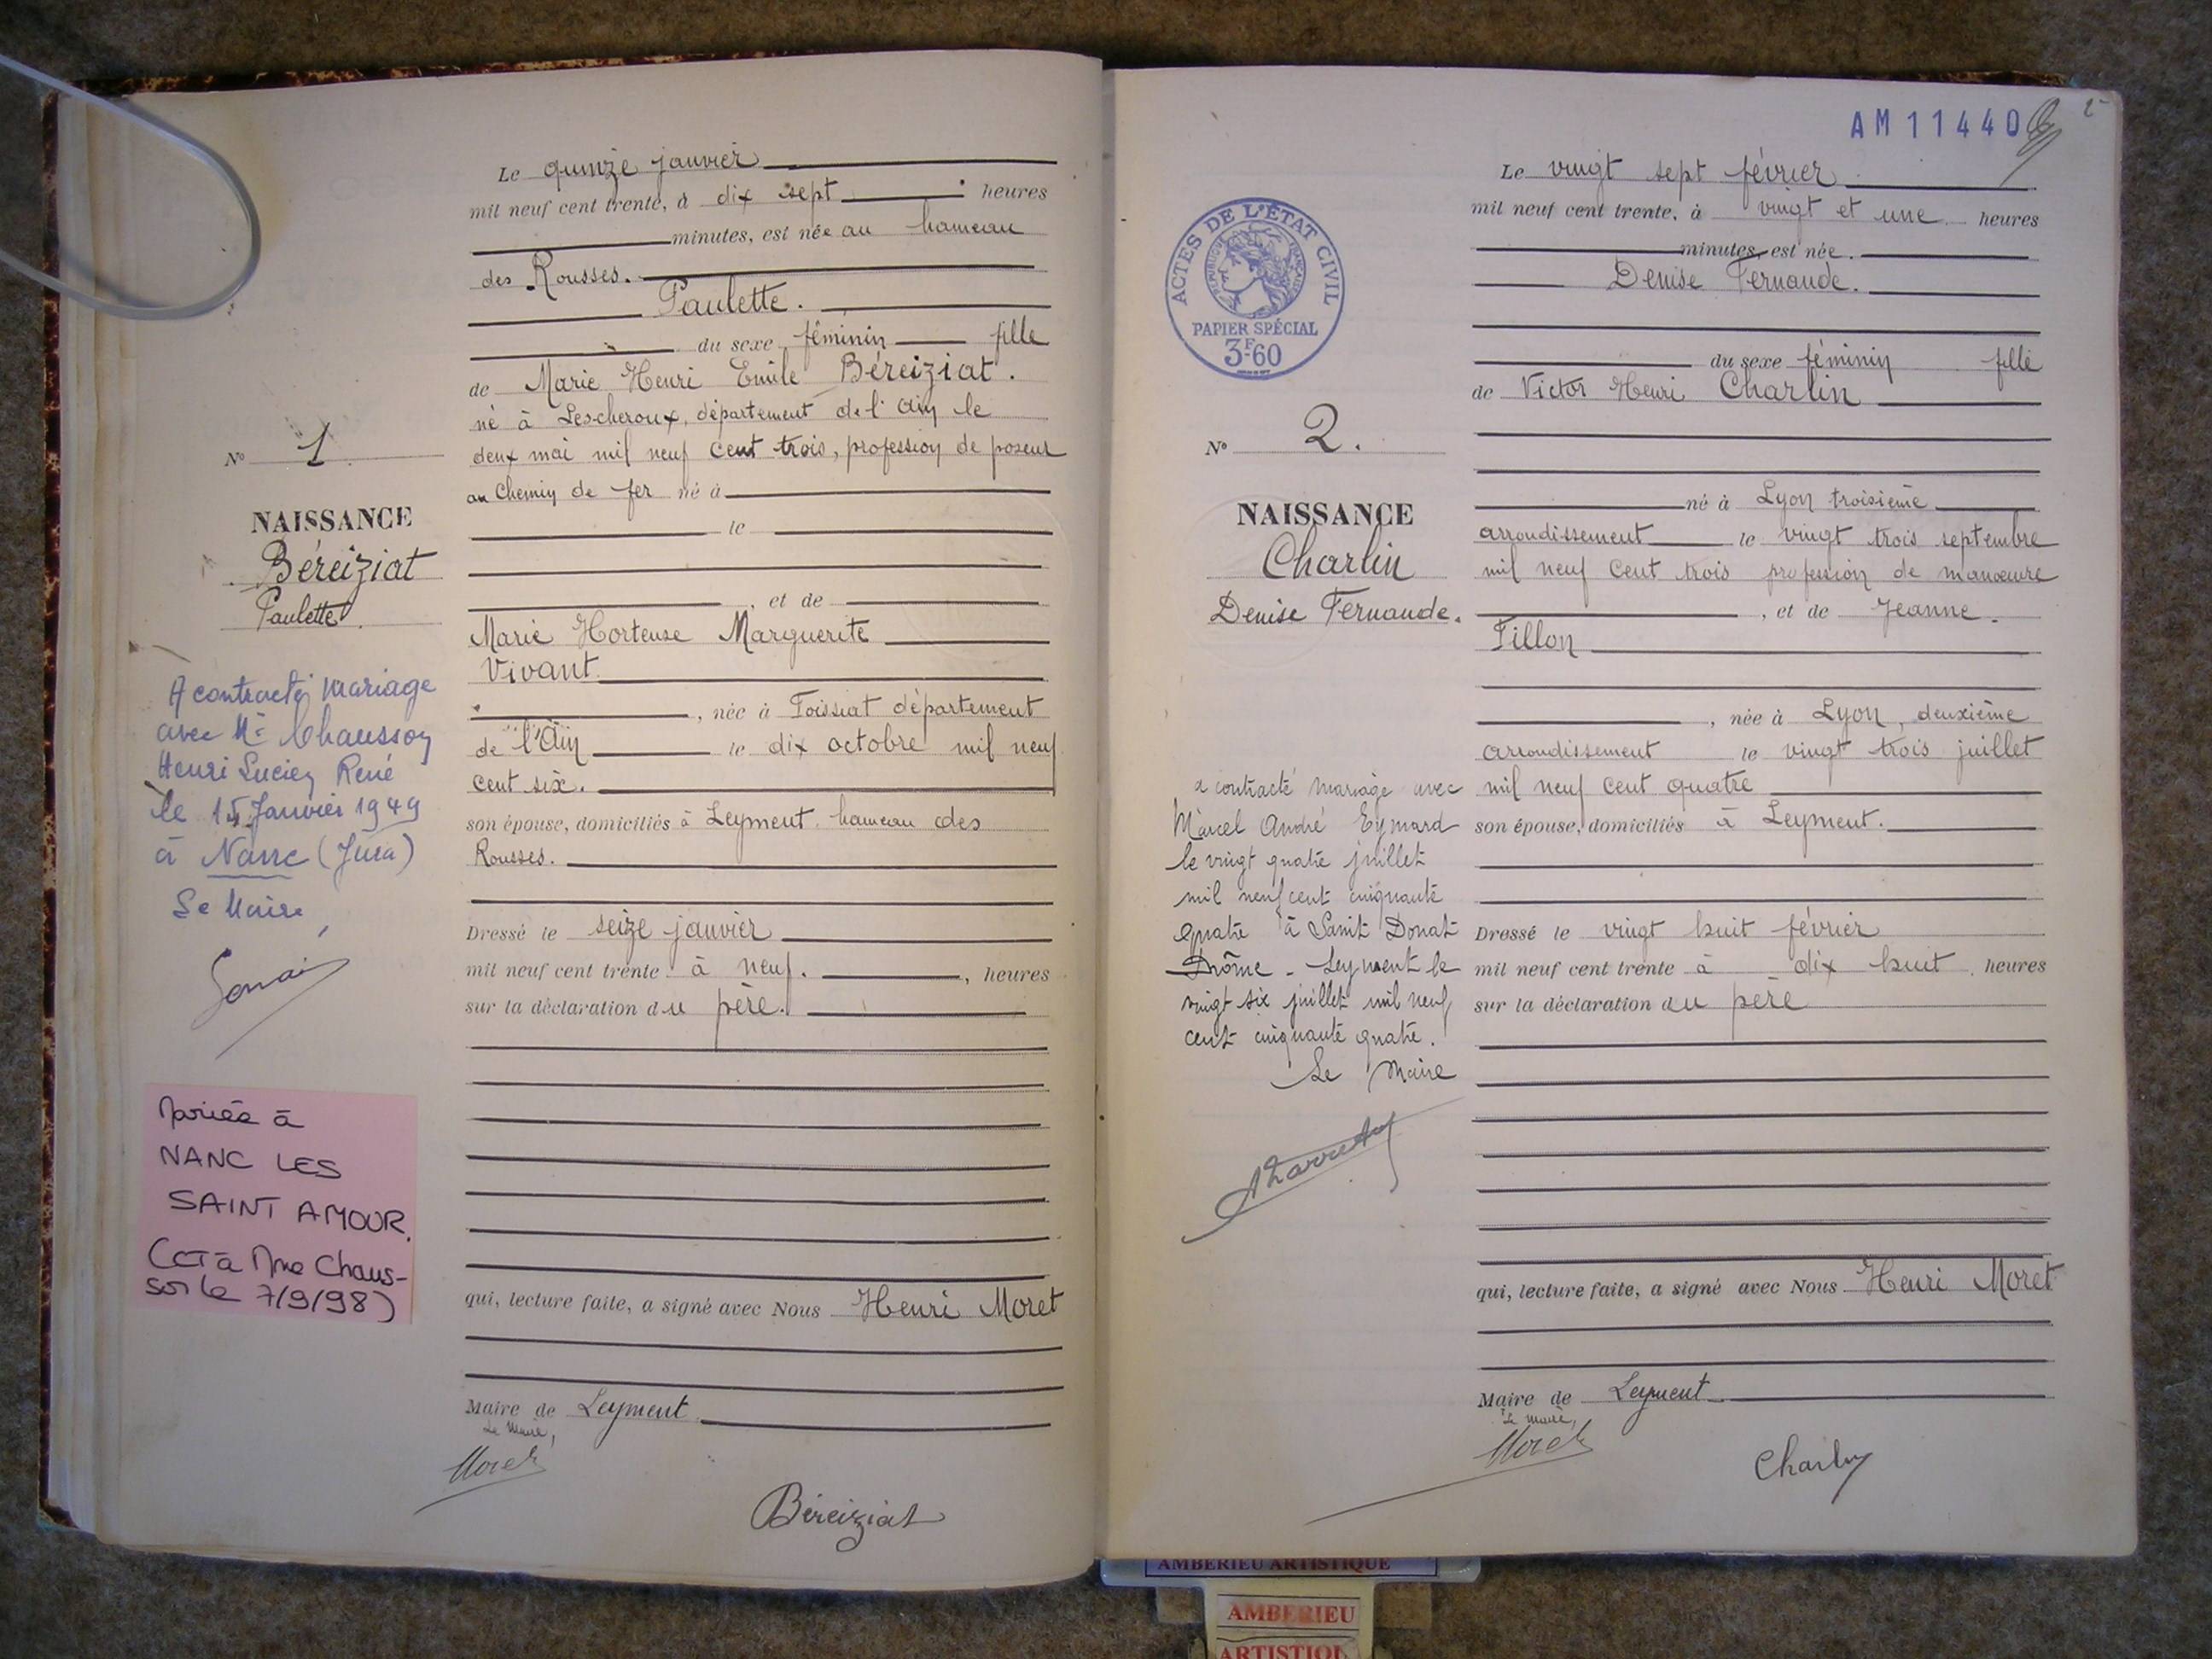 Le quinze janvier
mil neuf cent trente, à dix sept heures
minutes, est née au hameau
des Rousses.
Paulette.
du sexe féminin fille
de Marie Henri Emile Béreiziat.
né à Lescheroux, département de l'Ain le
deux mai mil neuf cent trois, profession de poseur
au Chemin de fer né à
le
, et de
Marie Hortense Marguerite
Vivant
, née à Foissiat département
de l'Ain le dix octobre mil neuf
cent six.
son épouse, domiciliés à Leyment hameau des
Rousses.
Dressé le seize janvier
mil neuf cent trente à neuf. , heures
sur la déclaration du père.
qui, lecture faite, a signé avec Nous Henri Moret
Maire de Leyment
Le Maire,
Moret
Béreiziat
No 1
NAISSANCE
Béreiziat
Paulette
A contracté mariage
avec Mr Chausson
Henri Lucien René
le 15 Janvier 1949
à Nanc (Jura)
Le Maire,
Mariée à
NANC LES
SAINT AMOUR.
(CCT à Mme Chaus-
son le 7/9/98)
AM 11440
2
ACTES DE L'ÉTAT CIVIL
RÉPUBLIQUE FRANÇAISE
PAPIER SPÉCIAL
3F60
No 2.
NAISSANCE
Charlin
Denise Fernande.
a contracté mariage avec
Marcel André Eymard
le vingt quatre juillet
mil neuf cent cinquante
quatre à Saint Donat
Drôme - Leyment le
vingt six juillet mil neuf
cent cinquante quatre.
Le Maire
Le vingt sept février
mil neuf cent trente, à vingt et une heures
minutes, est née.
Denise Fernande.
du sexe féminin fille
de Victor Henri Charlin
né à Lyon troisième
arrondissement le vingt trois septembre
mil neuf cent trois profession de manœuvre
, et de Jeanne.
Fillon
, née à Lyon, deuxième
arrondissement le vingt trois juillet
mil neuf cent quatre
son épouse, domiciliés à Leyment.
Dressé le vingt huit février
mil neuf cent trente à dix huit, heures
sur la déclaration du père
qui, lecture faite, a signé avec Nous Henri Moret
Maire de Leyment
Le Maire,
Moret
Charlin
AMBERIEU ARTISTIQUE
AMBERIEU
ARTISTIQU